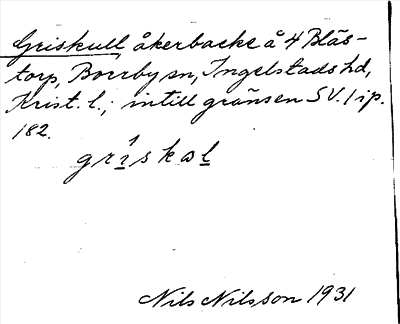 Griskull, åkerbacke å 4 Blås-
torp, Borrby sn, Ingelstads hd,
Krist. l.; intill gränsen SV. l ip.
182.
grìskωl
Nils Nilsson 1931